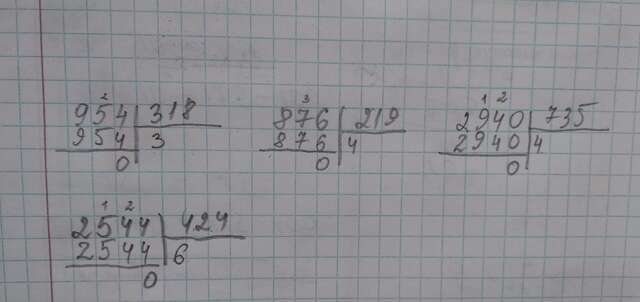 2 3 1 2
954 318 876 219 2940 735
954 3 876 4 2940 4
0 0 0
1 2
2544 424
2544 6
0